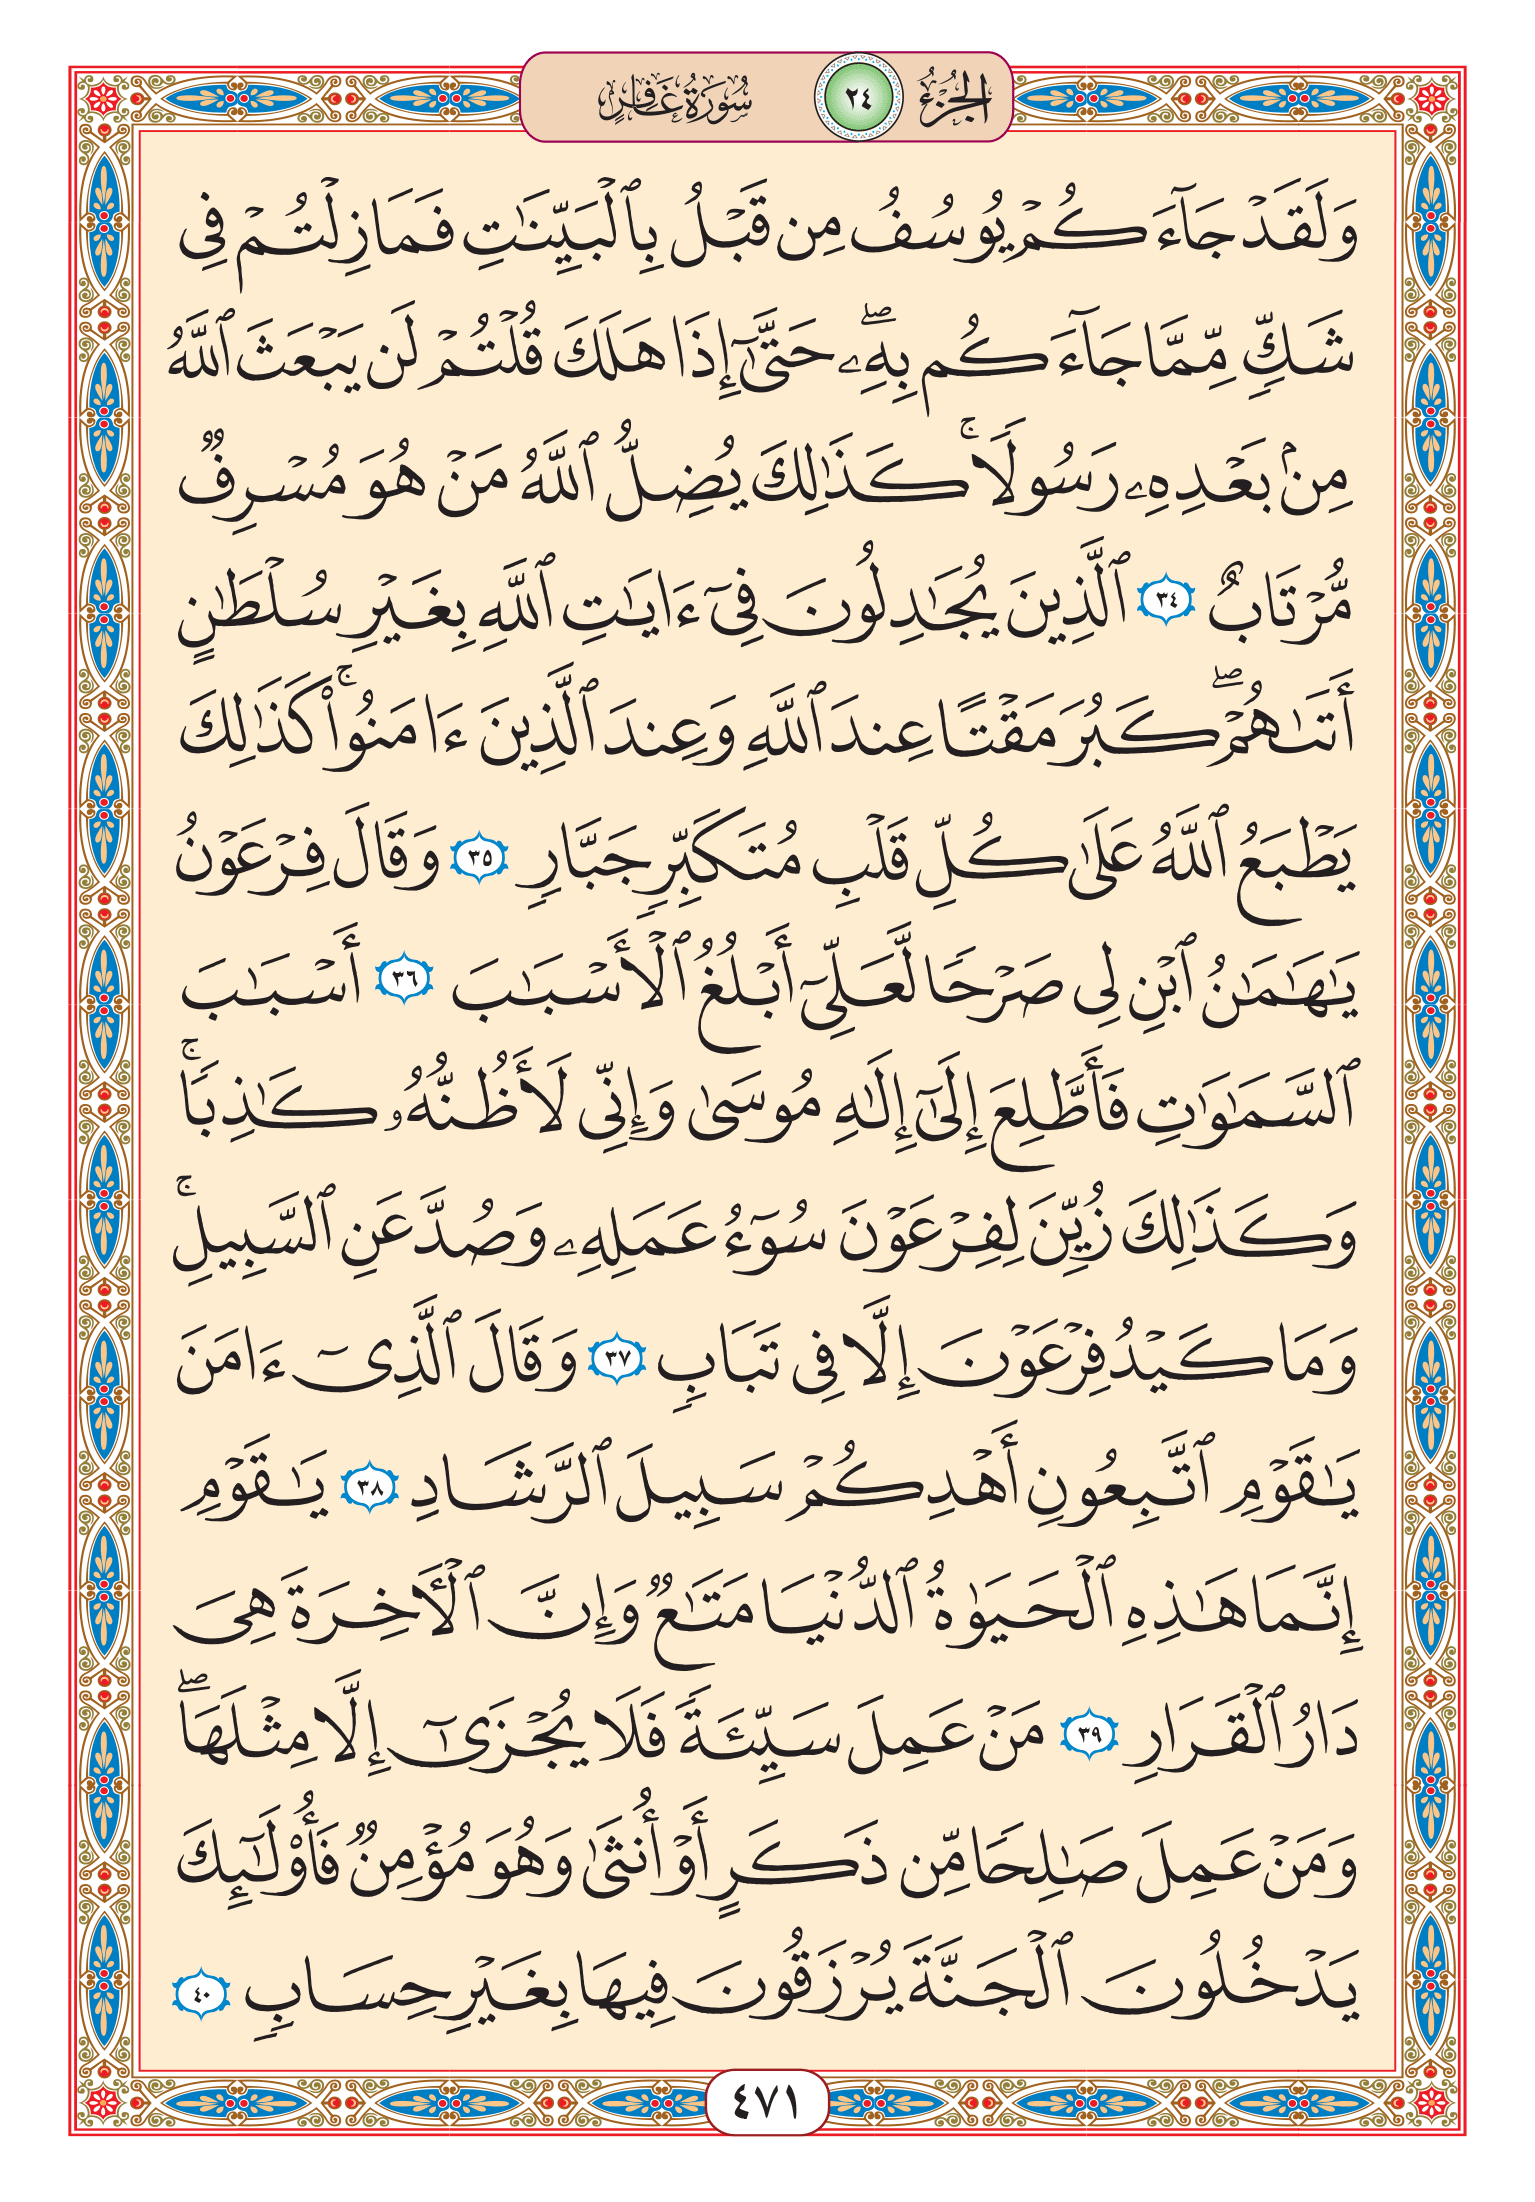 الجزء ٢٤ سورة غافر
وَلَقَدْ جَآءَكُمْ يُوسُفُ مِن قَبْلُ بِٱلْبَيِّنَٰتِ فَمَا زِلْتُمْ فِى
شَكٍّ مِّمَّا جَآءَكُم بِهِۦ ۖ حَتَّىٰٓ إِذَا هَلَكَ قُلْتُمْ لَن يَبْعَثَ ٱللَّهُ
مِنۢ بَعْدِهِۦ رَسُولًا ۚ كَذَٰلِكَ يُضِلُّ ٱللَّهُ مَنْ هُوَ مُسْرِفٌ
مُّرْتَابٌ ٣٤ ٱلَّذِينَ يُجَٰدِلُونَ فِىٓ ءَايَٰتِ ٱللَّهِ بِغَيْرِ سُلْطَٰنٍ
أَتَىٰهُمْ ۖ كَبُرَ مَقْتًا عِندَ ٱللَّهِ وَعِندَ ٱلَّذِينَ ءَامَنُوا۟ ۚ كَذَٰلِكَ
يَطْبَعُ ٱللَّهُ عَلَىٰ كُلِّ قَلْبِ مُتَكَبِّرٍ جَبَّارٍ ٣٥ وَقَالَ فِرْعَوْنُ
يَٰهَٰمَٰنُ ٱبْنِ لِى صَرْحًا لَّعَلِّىٓ أَبْلُغُ ٱلْأَسْبَٰبَ ٣٦ أَسْبَٰبَ
ٱلسَّمَٰوَٰتِ فَأَطَّلِعَ إِلَىٰٓ إِلَٰهِ مُوسَىٰ وَإِنِّى لَأَظُنُّهُۥ كَٰذِبًا ۚ
وَكَذَٰلِكَ زُيِّنَ لِفِرْعَوْنَ سُوٓءُ عَمَلِهِۦ وَصُدَّ عَنِ ٱلسَّبِيلِ ۚ
وَمَا كَيْدُ فِرْعَوْنَ إِلَّا فِى تَبَابٍ ٣٧ وَقَالَ ٱلَّذِىٓ ءَامَنَ
يَٰقَوْمِ ٱتَّبِعُونِ أَهْدِكُمْ سَبِيلَ ٱلرَّشَادِ ٣٨ يَٰقَوْمِ
إِنَّمَا هَٰذِهِ ٱلْحَيَوٰةُ ٱلدُّنْيَا مَتَٰعٌ وَإِنَّ ٱلْءَاخِرَةَ هِىَ
دَارُ ٱلْقَرَارِ ٣٩ مَنْ عَمِلَ سَيِّئَةً فَلَا يُجْزَىٰٓ إِلَّا مِثْلَهَا ۖ
وَمَنْ عَمِلَ صَٰلِحًا مِّن ذَكَرٍ أَوْ أُنثَىٰ وَهُوَ مُؤْمِنٌ فَأُو۟لَٰٓئِكَ
يَدْخُلُونَ ٱلْجَنَّةَ يُرْزَقُونَ فِيهَا بِغَيْرِ حِسَابٍ ٤٠
٤٧١